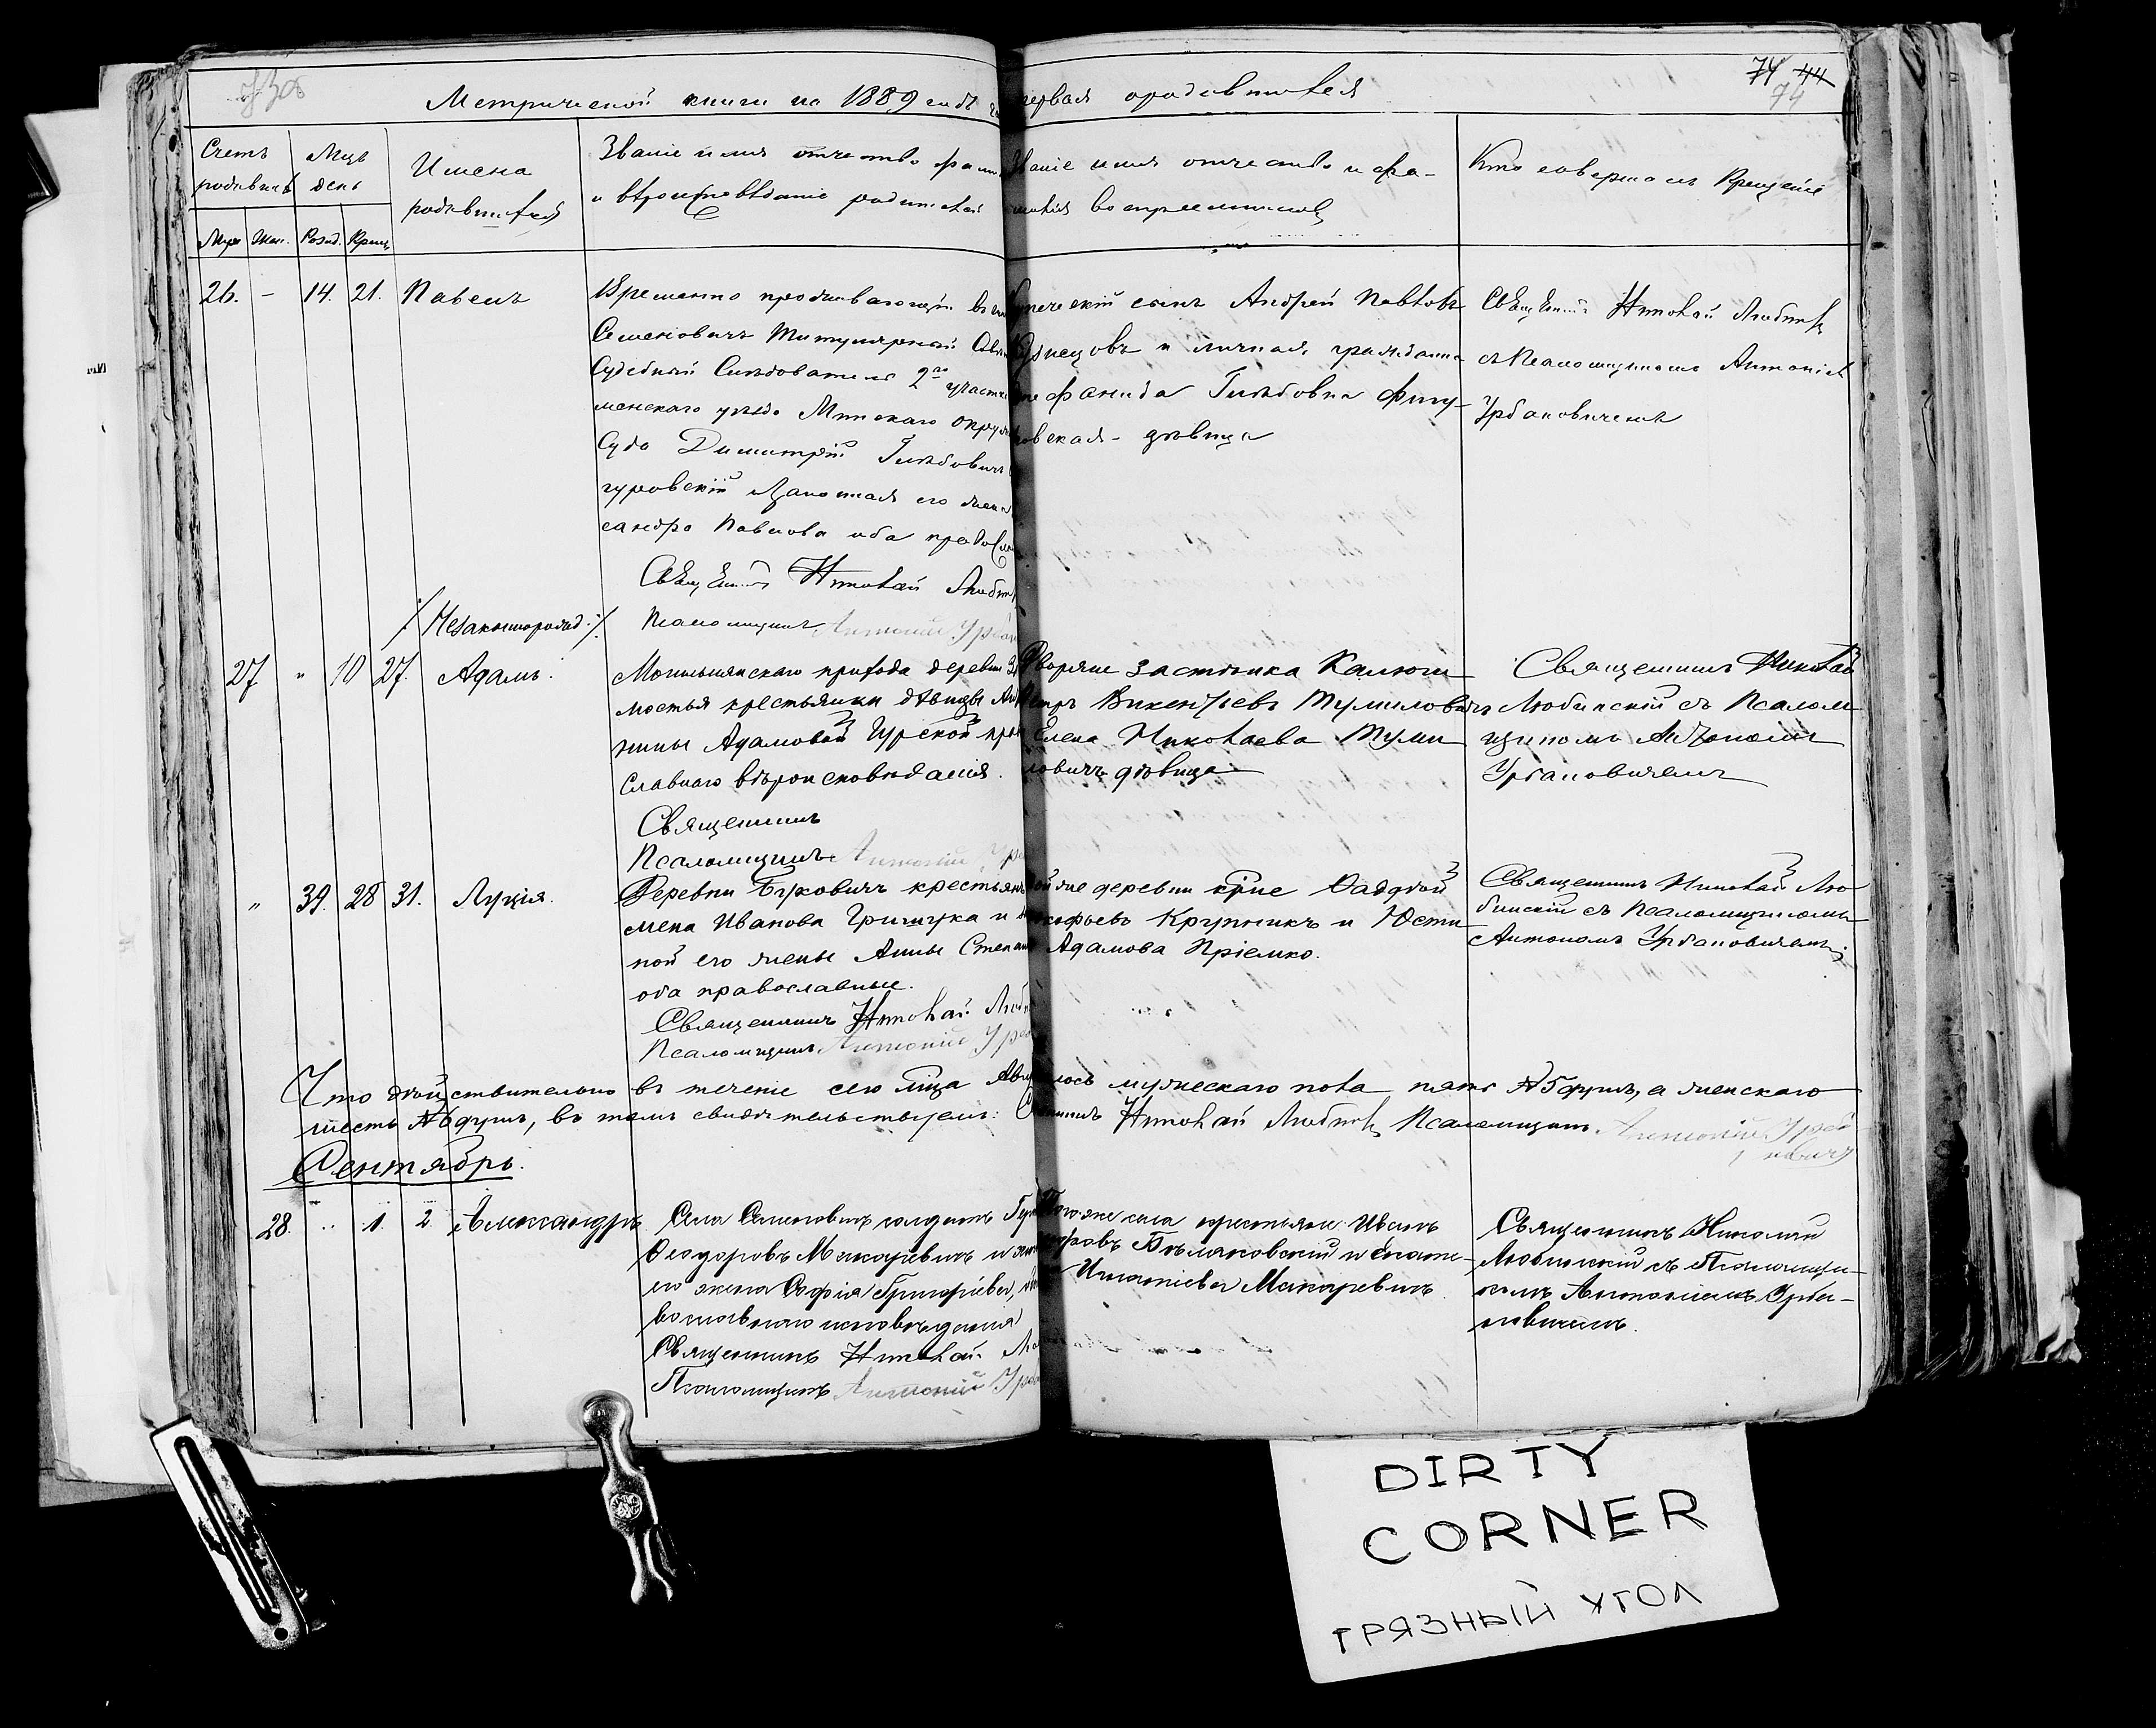 74 44
74
Метрической книги на 1889 годъ часть первая о родившихся
Счетъ родившихъ
Мцъ день
Имена родившихся
Званіе имя отчество фами
и вѣроисповѣданіе родителей
Званіе имя отчество и фа-
милія воспріемниковъ
Кто совершалъ Крещеніе
Муж Жен. Рожд. Крещ
26. - 14. 21. Павелъ
Временно проживающій въ
Семеновичъ Титулярный Совѣ
Судебный Слѣдователь 2го участка
менскаго уѣзда Минскаго Окруж
Суда Димитрій Глѣбовичъ
чуровскій Законная его жена
сандра Павлова оба правосла
Священникъ Николай Любин
Псаломщикъ Антоній Урбан
Купеческій сынъ Андрей Павловъ
Кузнецовъ и личная гражданка
Глѣбовна Фигу-
ровская - дѣвица
Священникъ Николай Любинск
съ Псаломщикомъ Антоніемъ
Урбановичемъ
/Незаконорожд./
27 " 10 27. Адамъ.
Могильнянскаго прихода деревни За
мостья крестьянки дѣвицы Ан
жины Адамовой Гурской пра
славнаго вѣроисповѣданія.
Священникъ
Псаломщикъ Антоній Ур
Дворяне застѣнка Калюги
Петръ Викентьевъ Тумиловичъ
Елена Николаева Туми
ловичъ дѣвица
Священникъ Николай
Любинскій съ Псалом
щикомъ Антоніемъ
Урбановичемъ
" 39. 28 31. Луція.
Деревни Буковичъ крестьян
мена Иванова Гришука и
ной его жены Анны Степан
оба православные.
Священникъ Николай Люб
Псаломщикъ Антоній Урба
той же деревни крше Фаддей
кофьевъ Крупникъ и Юсти
Адамова Пріемко.
Священникъ Николай Лю
бинскій съ Псаломщикомъ
Антономъ Урбановичемъ.
Что дѣйствительно въ теченіе сего мца Авгу лось мужескаго пола пять №5 душъ, а женскаго
шесть №6 душъ, въ томъ свидѣтельствуемъ: Священникъ Николай Любинск Псаломщикъ Антоній Урба
новичъ
Сентябрь.
28. " 1. 2. Александръ
Села Семеновичъ солдатъ Гри
Ѳеодоровъ Макаревичъ и зак
его жена Софія Григоріева, пра
вославнаго исповѣданія
Священникъ Николай Лю
Псаломщикъ Антоній Урба
Того же села крестьяне: Иванъ
Бѣляковскій и
Игнатіева Макаревичъ
Священникъ Николай
Любинскій съ Псаломщи-
комъ Антоніемъ Урба-
новичемъ.
DIRTY
CORNER
ГРЯЗНЫЙ УГОЛ